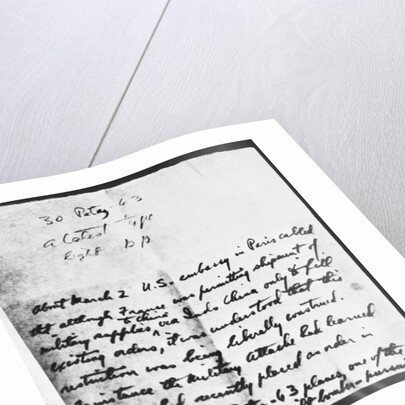 30 Potez-63
a latest type
Eight D B
About March 2 U.S. embassy in Paris cabled
tht although France was permitting shipment of
military supplies to China via Indo China only to fill
existing orders, it was understood that this
restriction was being liberally construed.
instance the Military Attache had learned
recently placed an order in
-63 planes, one of the
bomber-pursuit